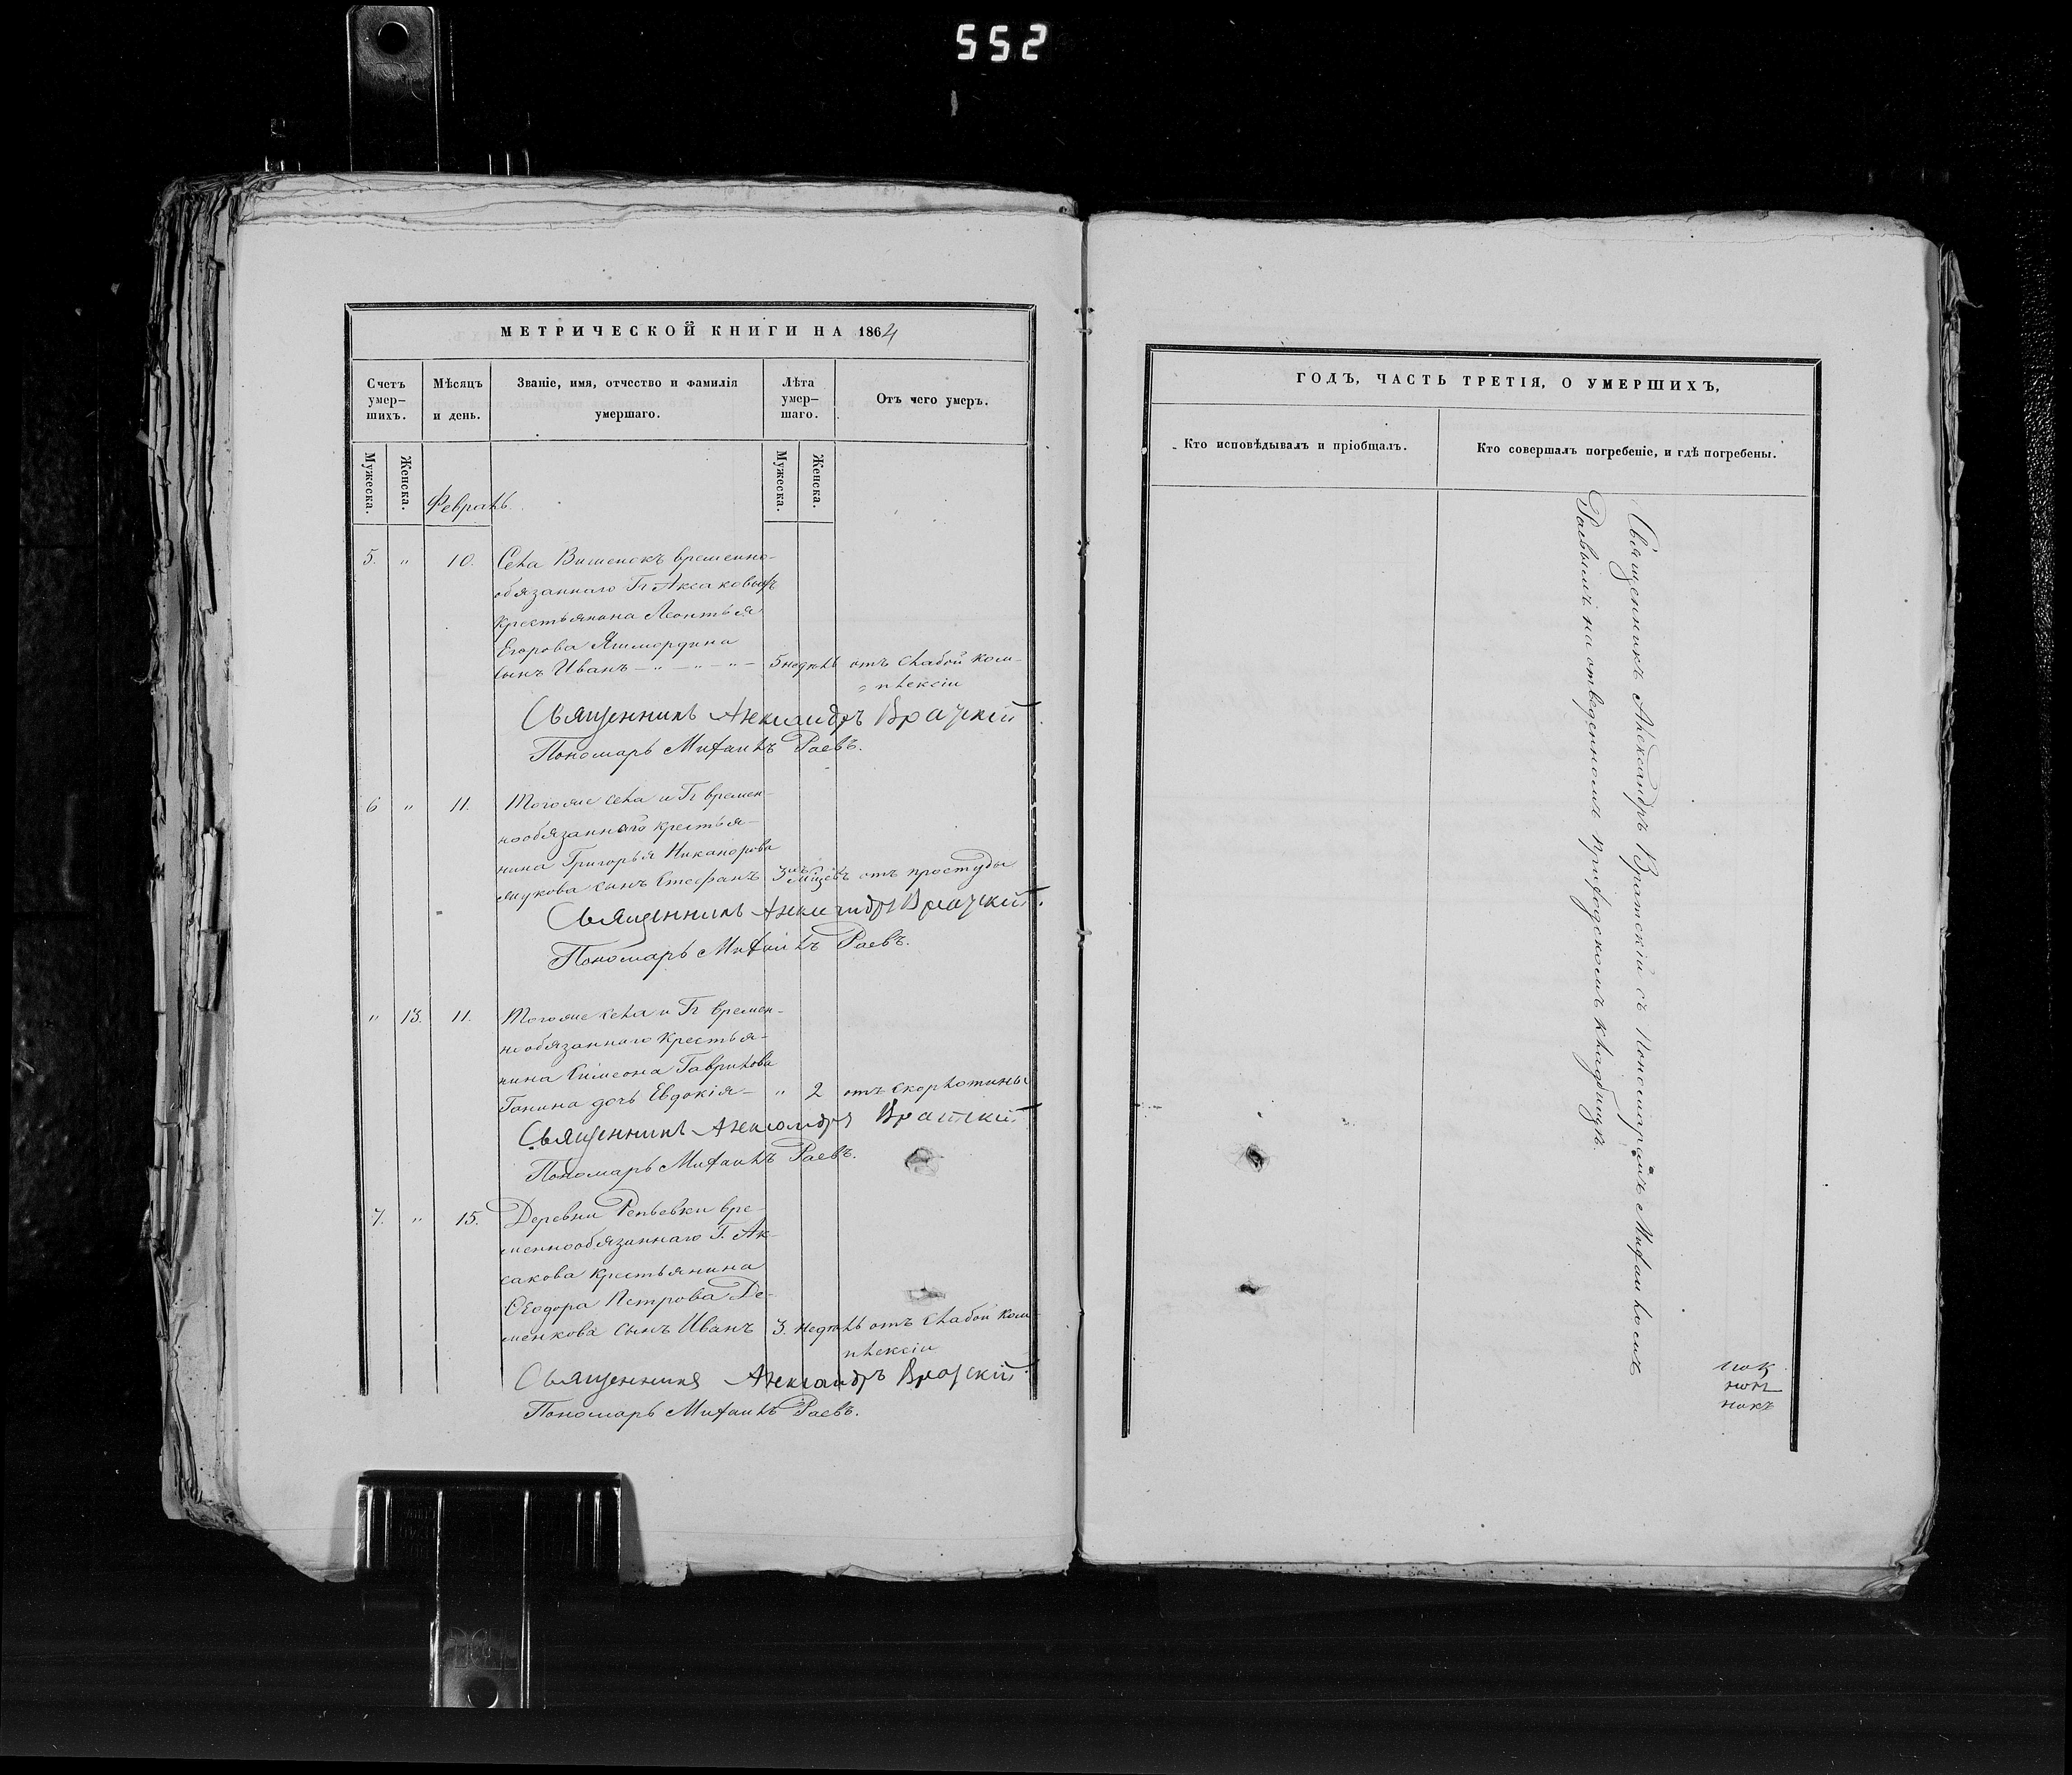 552
МЕТРИЧЕСКОЙ КНИГИ НА 1864
Счетъ умер-шихъ.
Мѣсяцъ и день.
Званіе, имя, отчество и фамилія умершаго.
Лѣта умер-шаго.
Отъ чего умеръ.
Мужеска.
Женска.
Февраль
Мужеска.
Женска.
5. " 10. Села Вишенокъ временно-
обязаннаго Гг Аксаковыхъ
крестьянина Леонтья
Егорова
сынъ Иванъ — " — " — " — 5 недѣль отъ слабой ком-
плексіи
Священникъ Александръ Вратскій.
Пономарь Михаилъ Раевъ.
6 " 11. Тогоже села и Гг времен-
нообязаннаго крестья-
нина Григорья Никанорова
сынъ Стефанъ 3хъ отъ простуды
Священникъ Александръ Вратскій.
Пономарь Михаилъ Раевъ.
" 13. 11. Тогоже села и Гг времен-
нообязаннаго крестья-
нина Симеона Гаврилова
Ганина дочь Евдокія — " 2 отъ скорлотины
Священникъ Александръ Вратскій
Пономарь Михаилъ Раевъ.
7. " 15. Деревни Репьевки вре-
меннообязаннаго Г. Ак-
сакова крестьянина
Ѳеодора Петрова Де-
менкова сынъ Иванъ 3. недѣль отъ слабой ком-
плексіи
Священникъ Александръ Вратскій
Пономарь Михаилъ Раевъ.
ГОДЪ, ЧАСТЬ ТРЕТІЯ, О УМЕРШИХЪ,
Кто исповѣдывалъ и пріобщалъ.
Кто совершалъ погребеніе, и гдѣ погребены.
Священникъ Александръ Вратскій съ Пономаремъ Михаиломъ
Раевымъ на отведенномъ приходскомъ кладбищѣ.
никъ